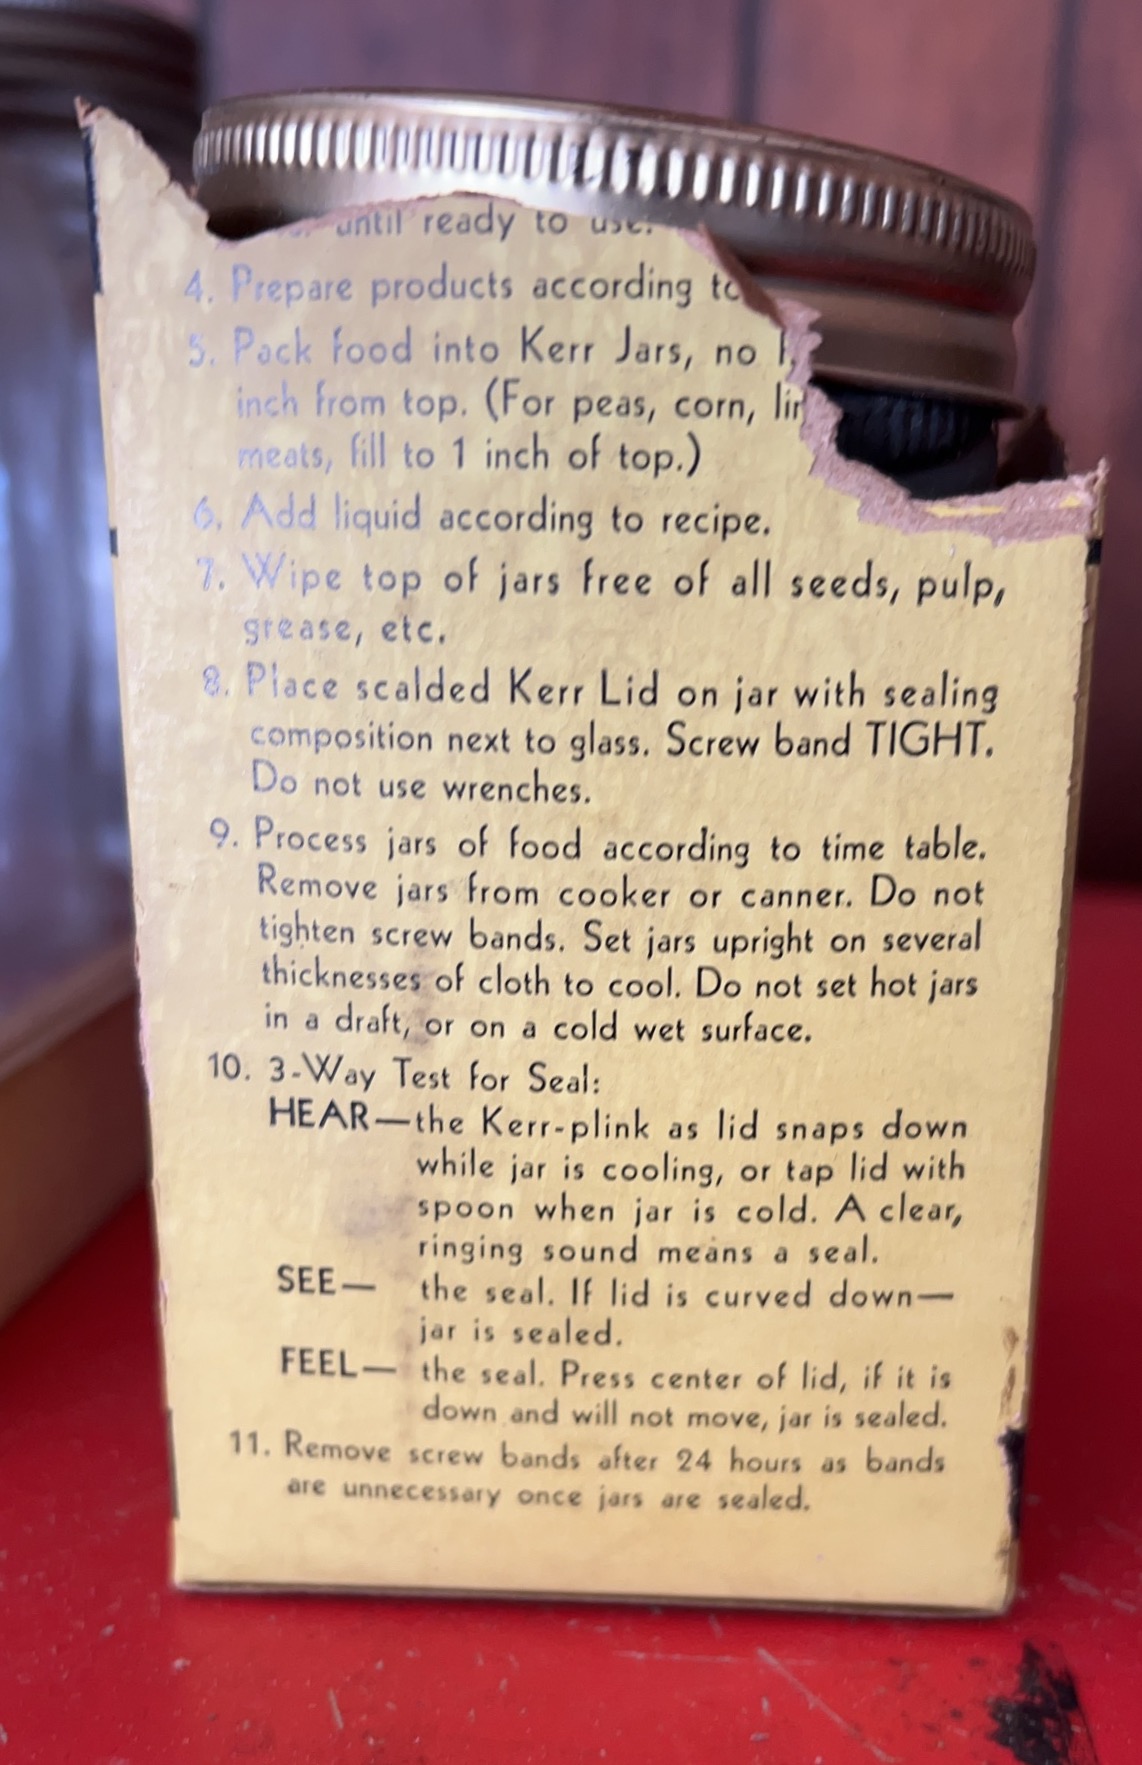 until ready to use.
4. Prepare products according to
5. Pack food into Kerr Jars, no
inch from top. (For peas, corn,
meats, fill to 1 inch of top.)
6. Add liquid according to recipe.
7. Wipe top of jars free of all seeds, pulp,
grease, etc.
8. Place scalded Kerr Lid on jar with sealing
composition next to glass. Screw band TIGHT.
Do not use wrenches.
9. Process jars of food according to time table.
Remove jars from cooker or canner. Do not
tighten screw bands. Set jars upright on several
thicknesses of cloth to cool. Do not set hot jars
in a draft, or on a cold wet surface.
10. 3-Way Test for Seal:
HEAR—the Kerr-plink as lid snaps down
while jar is cooling, or tap lid with
spoon when jar is cold. A clear,
ringing sound means a seal.
SEE— the seal. If lid is curved down—
jar is sealed.
FEEL— the seal. Press center of lid, if it is
down and will not move, jar is sealed.
11. Remove screw bands after 24 hours as bands
are unnecessary once jars are sealed.